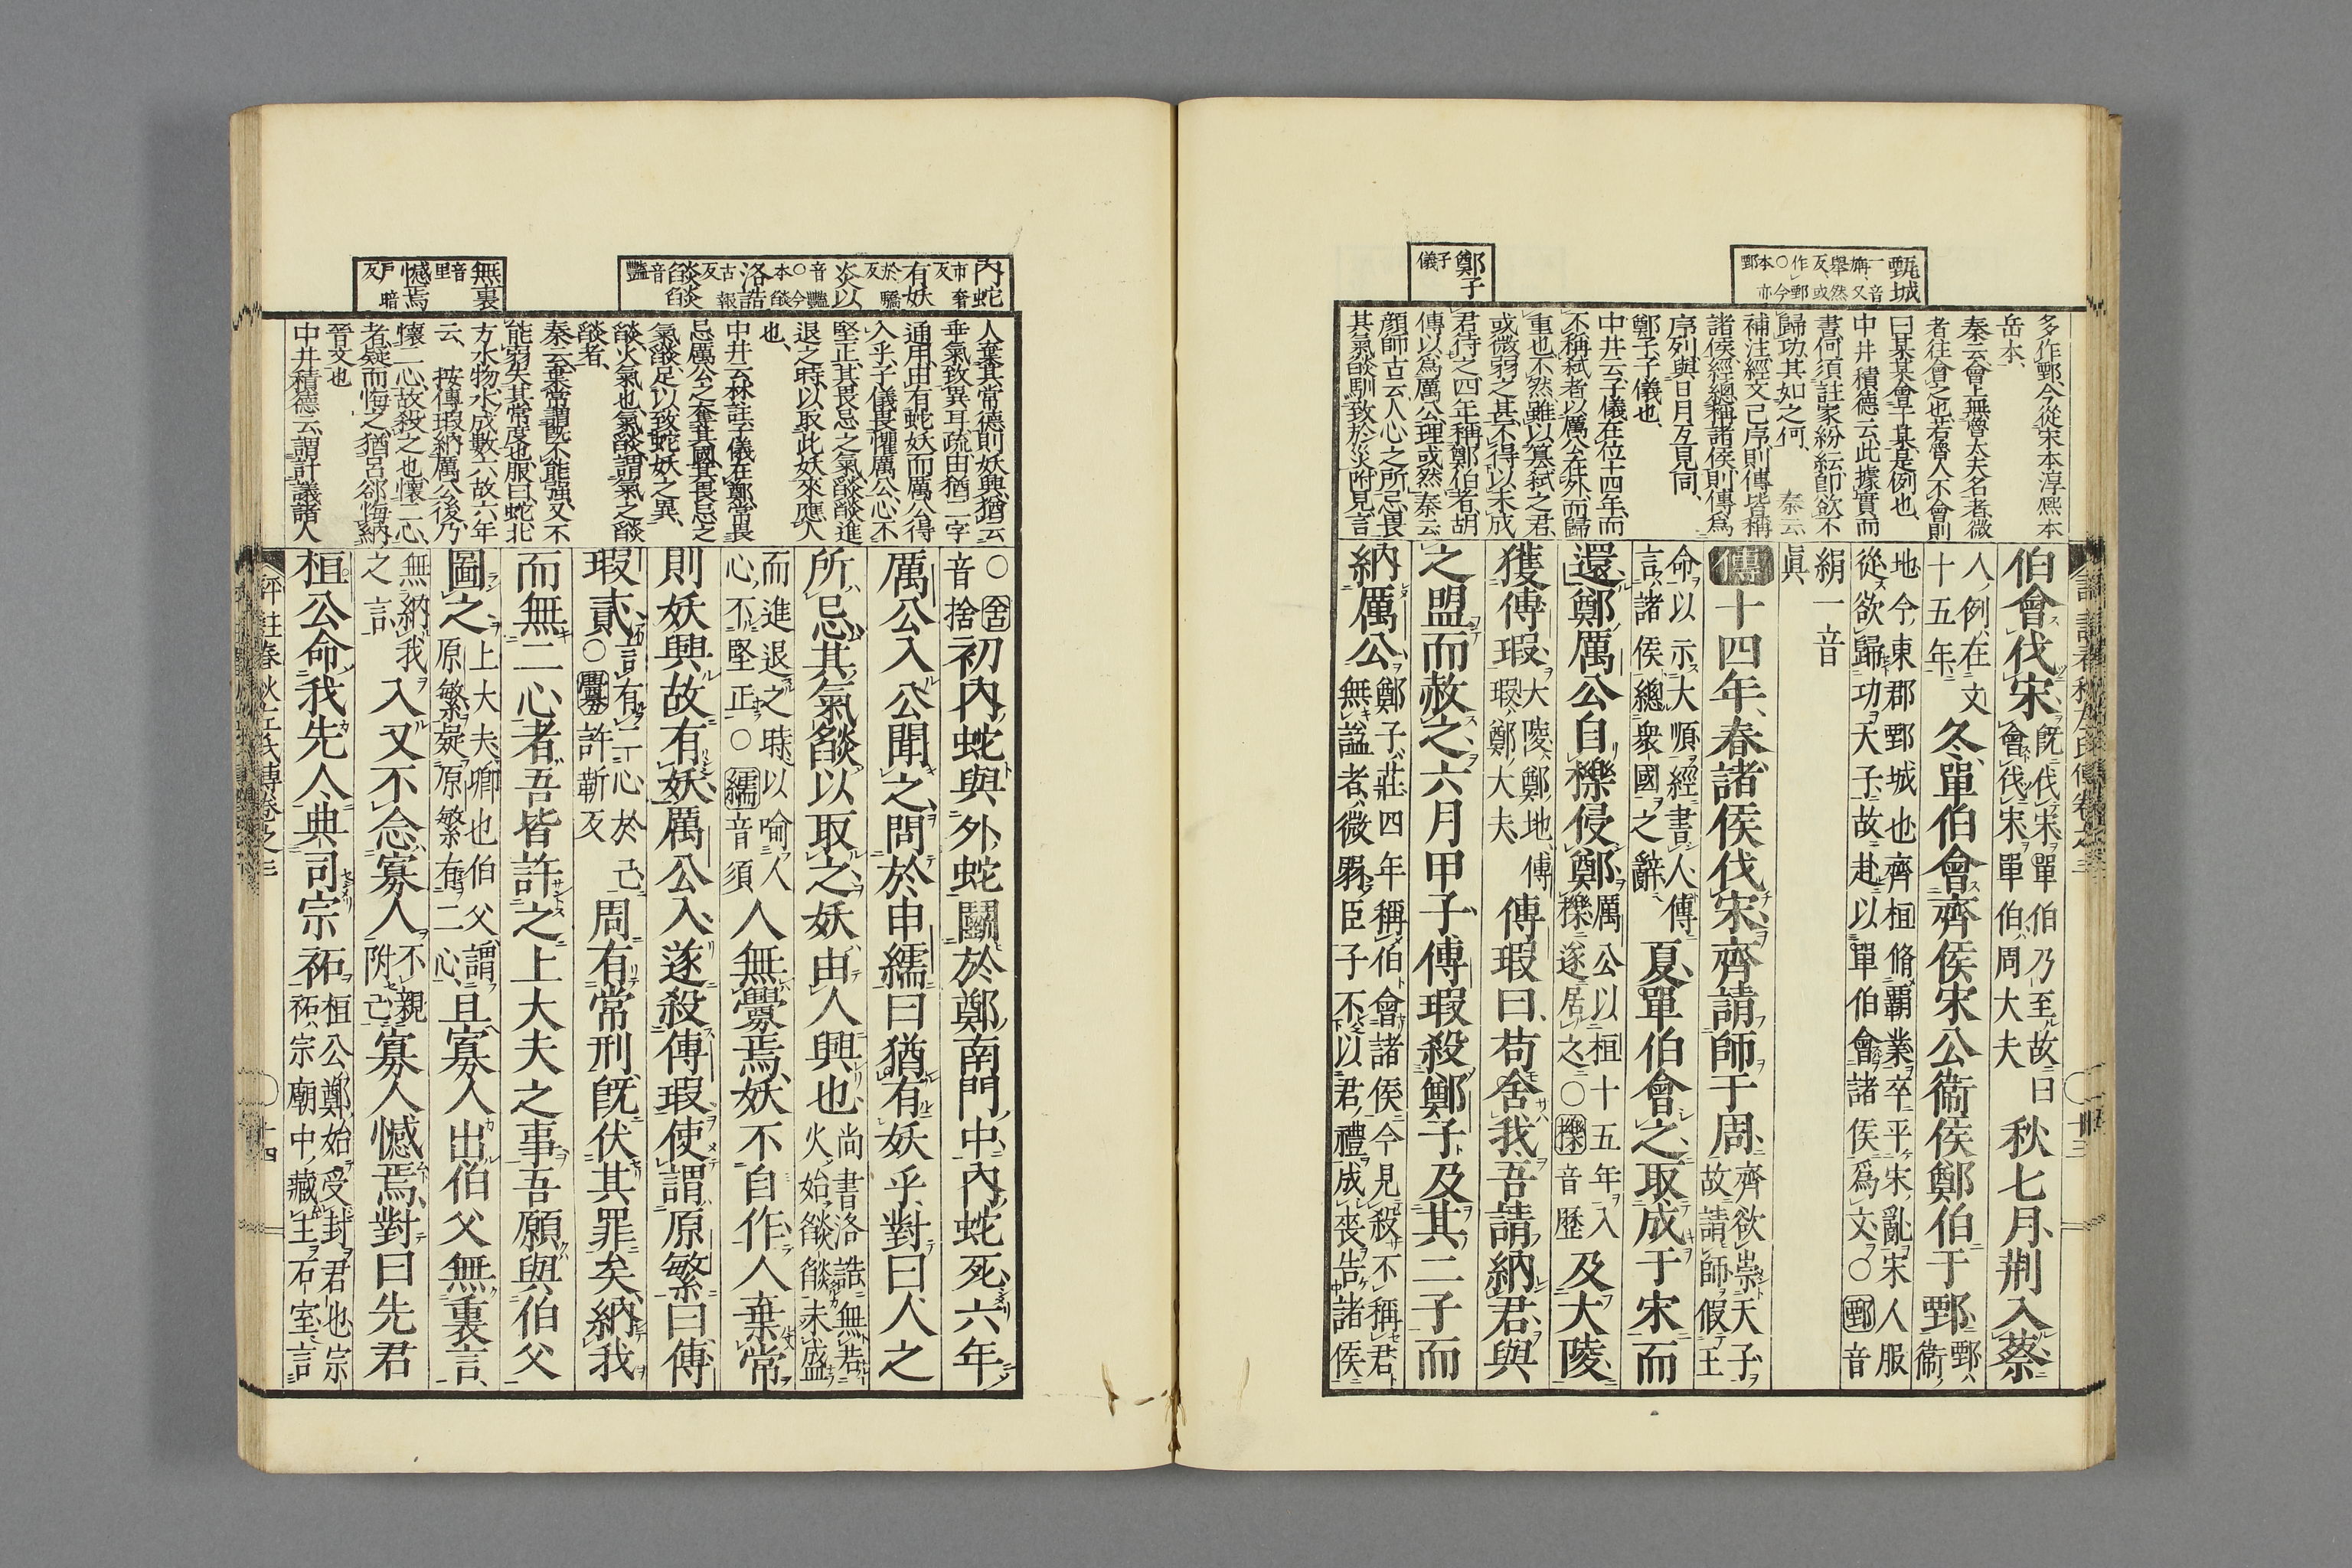 甄城
一音
旃又音
舉然或
反
作鄄
○今亦
本鄄
鄭子
子儀
多作鄄今從宋本淳熙本
岳本
秦云會上無魯大夫名者微
者往會之也若魯人不會則
曰某某會于某是例也
中井積德云此據實而
書何須註家紛紜卽欲不
歸功其如之何　秦云
補注經文已序則傳皆稱
諸侯經總稱諸侯則傳爲
序列與日月互見同
鄭子子儀也
中井云子儀在位十四年而
不稱弑者以厲公在外而歸
重也不然雖以篡弑之君
或微弱之甚不得以未成
君待之四年稱鄭伯者胡
傳以爲厲公理或然秦云
顔師古云人心之所忌畏
其氣燄馴致於災附見言
伯會伐宋
既伐宋單伯乃至故曰
會伐宋單伯周大夫
秋七月荆入蔡
人例在文
十五年
冬單伯會齊侯宋公衞侯鄭伯于鄄
鄄衞
地今東郡鄄城也齊桓脩覇業卒平宋亂宋人服
從欲歸功天子故赴以單伯會諸侯爲文○鄄音
絹一音
眞
傳十四年春諸侯伐宋齊請師于周
齊欲崇天子
故請師假王
命以示大順經書人傳
言諸侯總衆國之辭
夏單伯會之取成于宋而
還鄭厲公自櫟侵鄭
厲公以桓十五年入
櫟遂居之○櫟音歷
及大陵
獲傅瑕
大陵鄭地傅
瑕鄭大夫
傅瑕曰苟舍我吾請納君與
之盟而赦之六月甲子傅瑕殺鄭子及其二子而
納厲公
鄭子莊四年稱伯會諸侯今見殺不稱君
無謚者微弱臣子不以君禮成喪告諸侯
內蛇
市奢
反
有妖
於驕
反
炎以
音豔
○今
本燄
洛誥
古報
反
燄燄
音豔
無裏
音
里
憾焉
戶暗
反
人棄其常德則妖興猶云
垂氣致異耳疏由猶二字
通用由有蛇妖而厲公得
入乎子儀畏懼厲公心不
堅正其畏忌之氣燄燄進
退之時以取此妖來應人
也
中井云林註子儀在鄭常畏
忌厲公之奪其國其畏忌之
氣燄足以致蛇妖之異
燄火氣也氣燄謂氣之燄
燄者
秦云棄常謂既不能強又不
能弱失其常度也服曰蛇北
方水物水成數六故六年
云　按傅瑕納厲公後乃
懷二心故殺之也懷二心
者疑而悔之猶呂郤悔納
晉文也
中井積德云謂計議諸人
○舍
音捨
初內蛇與外蛇鬭於鄭南門中內蛇死六年
厲公入公聞之問於申繻曰猶有妖乎對曰人之
所忌其氣燄以取之妖由人興也
尚書洛誥無若
火始燄燄未盛
而進退之時以喻人
心不堅正○繻音須
人無釁焉妖不自作人棄常
則妖興故有妖厲公入遂殺傅瑕使謂原繁曰傅
瑕貳
言有二心於己
○釁許靳反
周有常刑既伏其罪矣納我
而無二心者吾皆許之上大夫之事吾願與伯父
圖之
上大夫卿也伯父謂
原繁疑原繁有二心
且寡人出伯父無裏言
無納我
之言
入又不念寡人
不親
附己
寡人憾焉對曰先君
桓公命我先人典司宗祏
桓公鄭始受封君也宗
祏宗廟中藏主石室言
評註春秋左氏傳卷之三
十四